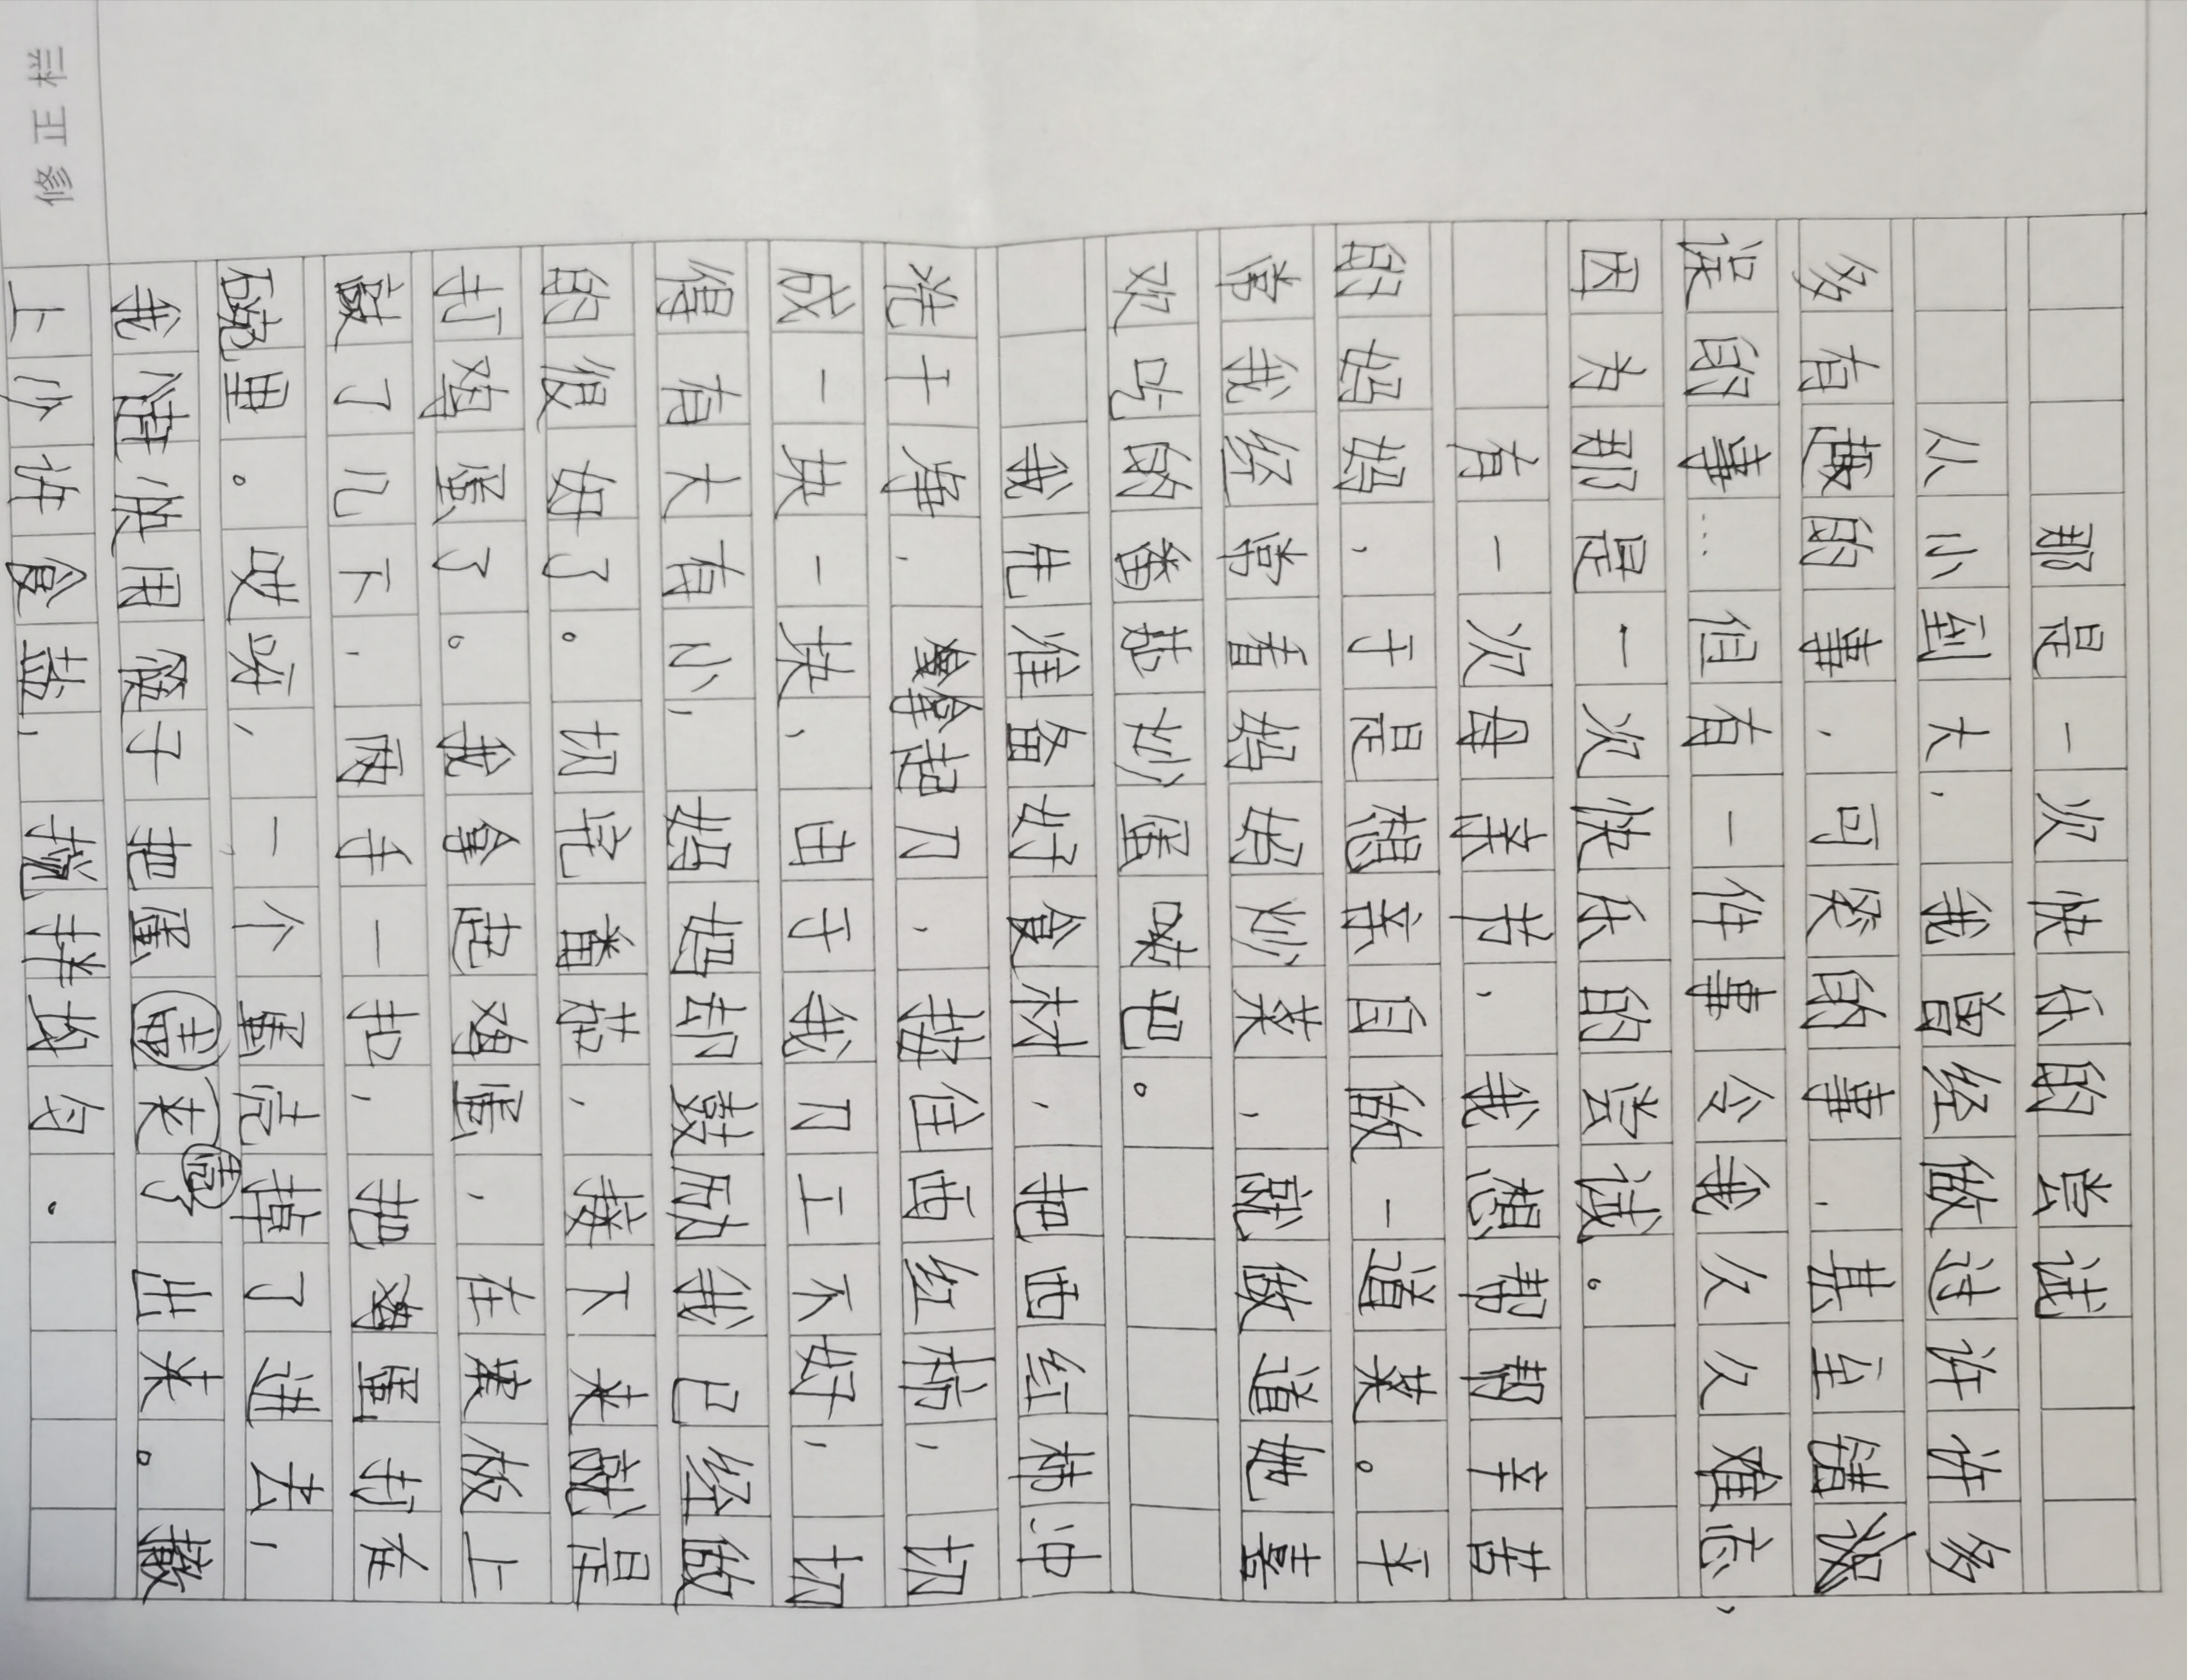 那是一次快乐的尝试
从小到大，我曾经做过许许多
多有趣的事，可笑的事，甚至错
误的事…但有一件事令我久久难忘，
因为那是一次快乐的尝试。
有一次母亲节，我想帮帮辛苦
的妈妈，于是想亲自做一道菜。平
常我经常看妈妈炒菜，就做道她喜
欢吃的番茄炒蛋吧。
我先准备好食材，把西红柿冲
洗干净，拿起刀，按住西红柿，切
成一块一块，由于我刀工不好，切
得有大有小，妈妈却鼓励我已经做
的很好了。切完番茄，接下来就是
打鸡蛋了。我拿起鸡蛋，在桌板上
敲了几下，两手一扒，把鸡蛋打在
碗里。哎呀，一个蛋壳掉了进去，
我赶快用筷子把蛋壳夹了出来。撒
上少许食盐，搅拌均匀．
修正栏